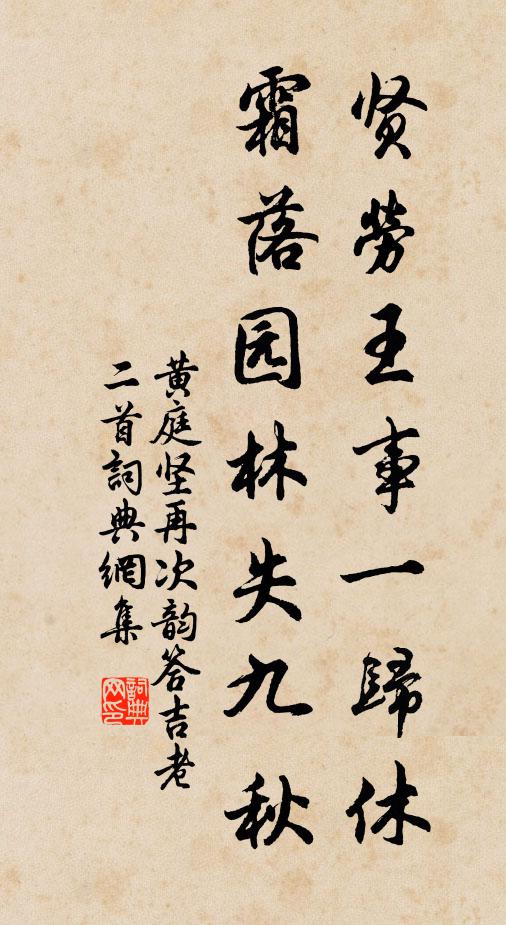 贤勞王事一歸休
霜落园林失九秋
黄庭坚再次韵答吉老
二首詞典網集
詞典网印